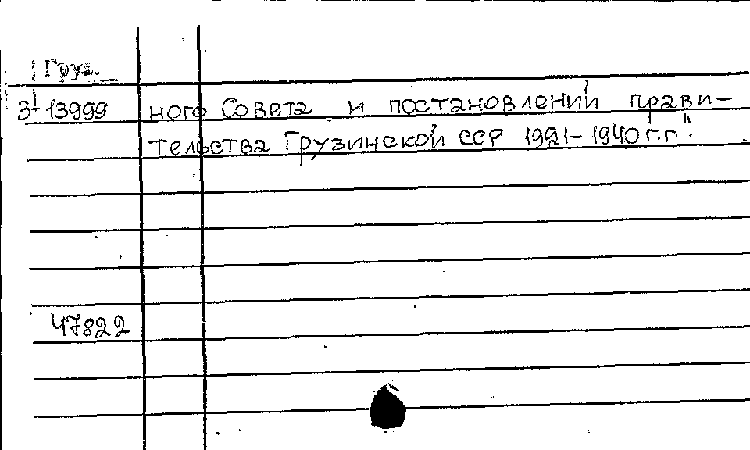 Груз.
3-13999 ного Совета и постановлений прави-
тельства Грузинской ССР 1921-1940 г.г".
47822